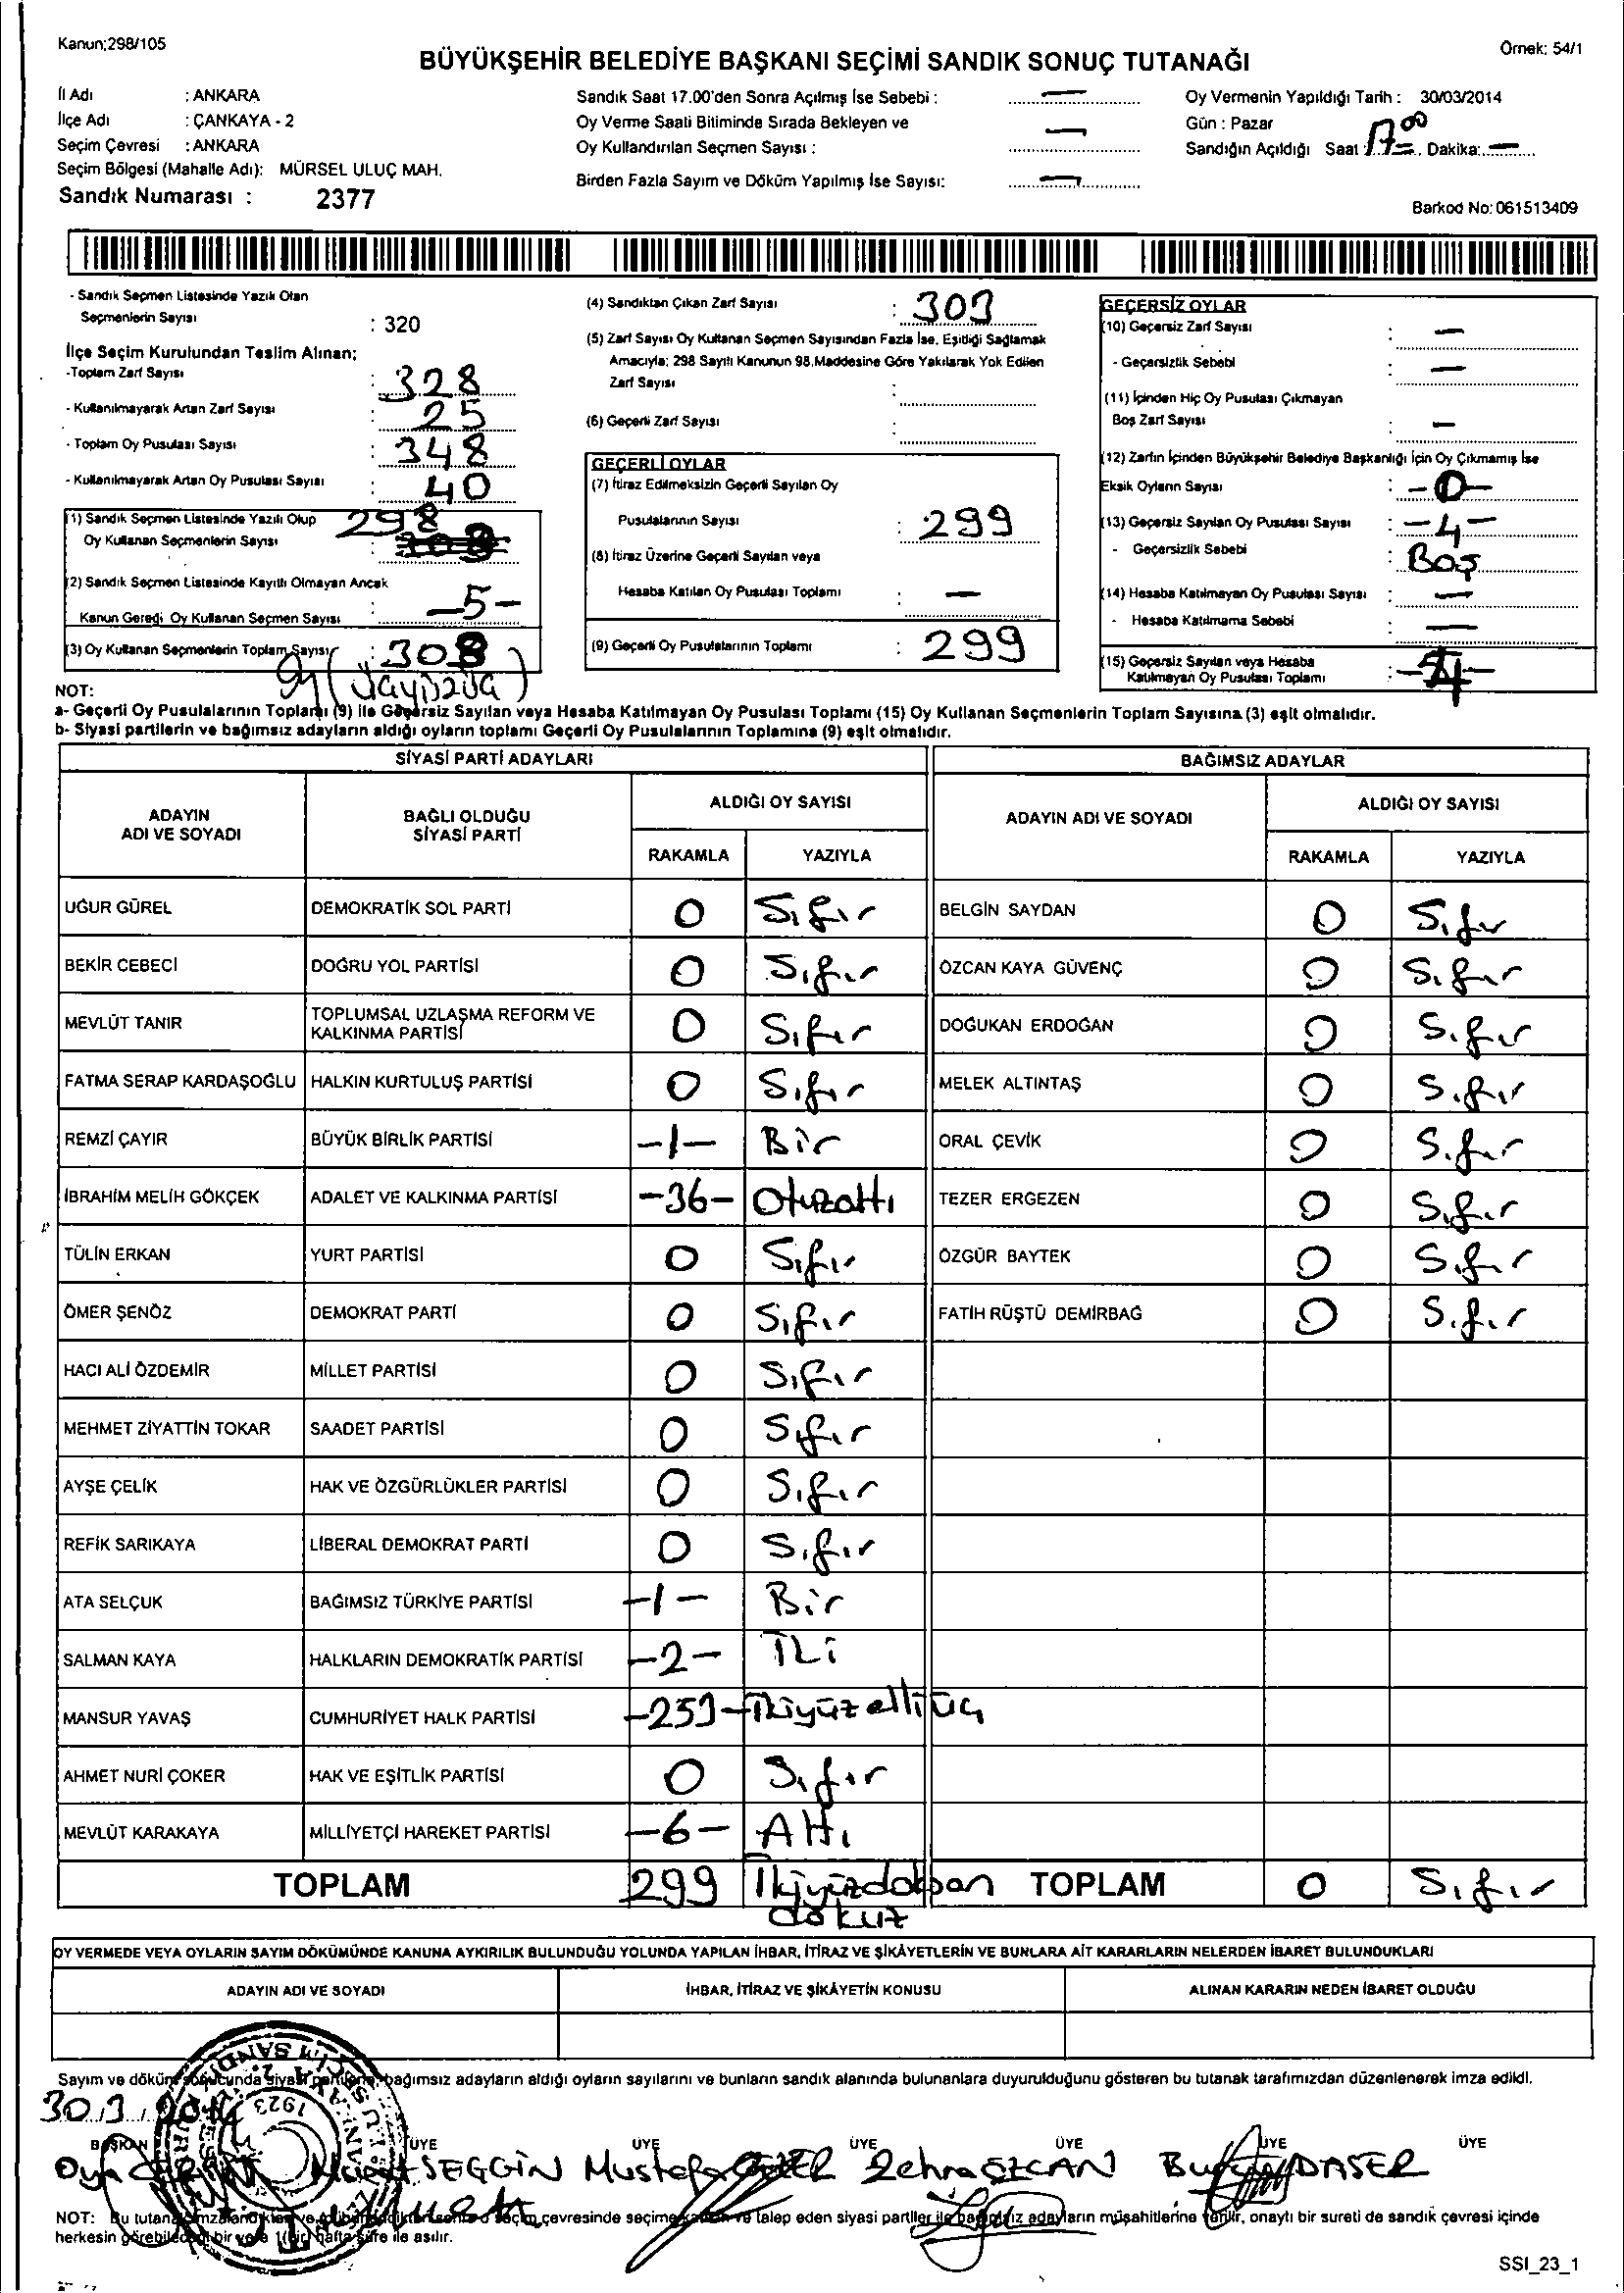 Kanun;298/105
Örnek: 54/1
BÜYÜKŞEHİR BELEDİYE BAŞKANI SEÇİMİ SANDIK SONUÇ TUTANAĞI
İl Adı : ANKARA
İlçe Adı : ÇANKAYA - 2
Seçim Çevresi : ANKARA
Seçim Bölgesi (Mahalle Adı): MÜRSEL ULUÇ MAH.
Sandık Numarası : 2377
Sandık Saat 17.00'den Sonra Açılmış İse Sebebi : —
Oy Verme Saati Bitiminde Sırada Bekleyen ve
Oy Kullandırılan Seçmen Sayısı : —
Birden Fazla Sayım ve Döküm Yapılmış İse Sayısı: —
Oy Vermenin Yapıldığı Tarih : 30/03/2014
Gün : Pazar
Sandığın Açıldığı Saat 17 00 Dakika: —
Barkod No: 061513409
- Sandık Seçmen Listesinde Yazılı Olan
Seçmenlerin Sayısı : 320
İlçe Seçim Kurulundan Teslim Alınan;
-Toplam Zarf Sayısı : 328
- Kullanılmayarak Artan Zarf Sayısı : 25
- Toplam Oy Pusulası Sayısı : 348
- Kullanılmayarak Artan Oy Pusulası Sayısı : 40
(1) Sandık Seçmen Listesinde Yazılı Olup 298
Oy Kullanan Seçmenlerin Sayısı :
(2) Sandık Seçmen Listesinde Kayıtlı Olmayan Ancak
Kanun Gereği Oy Kullanan Seçmen Sayısı : -5-
(3) Oy Kullanan Seçmenlerin Toplam Sayısı : 303
(4) Sandıktan Çıkan Zarf Sayısı : 303
(5) Zarf Sayısı Oy Kullanan Seçmen Sayısından Fazla İse, Eşitliği Sağlamak
Amacıyla; 298 Sayılı Kanunun 98.Maddesine Göre Yakılarak Yok Edilen
Zarf Sayısı :
(6) Geçerli Zarf Sayısı :
GEÇERLİ OYLAR
(7) İtiraz Edilmeksizin Geçerli Sayılan Oy
Pusulalarının Sayısı : 299
(8) İtiraz Üzerine Geçerli Sayılan veya
Hesaba Katılan Oy Pusulası Toplamı : —
(9) Geçerli Oy Pusulalarının Toplamı : 299
GEÇERSİZ OYLAR
(10) Geçersiz Zarf Sayısı : —
- Geçersizlik Sebebi : —
(11) İçinden Hiç Oy Pusulası Çıkmayan
Boş Zarf Sayısı : —
(12) Zarfın İçinden Büyükşehir Belediye Başkanlığı İçin Oy Çıkmamış İse
Eksik Oyların Sayısı : -0-
(13) Geçersiz Sayılan Oy Pusulası Sayısı : -4-
- Geçersizlik Sebebi : Boş
(14) Hesaba Katılmayan Oy Pusulası Sayısı : —
- Hesaba Katılmama Sebebi : —
(15) Geçersiz Sayılan veya Hesaba
Katılmayan Oy Pusulası Toplamı : -4-
NOT:
a- Geçerli Oy Pusulalarının Toplamı (9) ile Geçersiz Sayılan veya Hesaba Katılmayan Oy Pusulası Toplamı (15) Oy Kullanan Seçmenlerin Toplam Sayısına (3) eşit olmalıdır.
b- Siyasi partilerin ve bağımsız adayların aldığı oyların toplamı Geçerli Oy Pusulalarının Toplamına (9) eşit olmalıdır.
SİYASİ PARTİ ADAYLARI BAĞIMSIZ ADAYLAR
ADAYIN ADI VE SOYADI BAĞLI OLDUĞU SİYASİ PARTİ ALDIĞI OY SAYISI ADAYIN ADI VE SOYADI ALDIĞI OY SAYISI
RAKAMLA YAZIYLA RAKAMLA YAZIYLA
UĞUR GÜREL DEMOKRATİK SOL PARTİ 0 Sıfır BELGİN SAYDAN 0 Sıfır
BEKİR CEBECİ DOĞRU YOL PARTİSİ 0 Sıfır ÖZCAN KAYA GÜVENÇ 0 Sıfır
MEVLÜT TANIR TOPLUMSAL UZLAŞMA REFORM VE KALKINMA PARTİSİ 0 Sıfır DOĞUKAN ERDOĞAN 0 Sıfır
FATMA SERAP KARDAŞOĞLU HALKIN KURTULUŞ PARTİSİ 0 Sıfır MELEK ALTINTAŞ 0 Sıfır
REMZİ ÇAYIR BÜYÜK BİRLİK PARTİSİ -1- Bir ORAL ÇEVİK 0 Sıfır
İBRAHİM MELİH GÖKÇEK ADALET VE KALKINMA PARTİSİ -36- Otuzaltı TEZER ERGEZEN 0 Sıfır
TÜLİN ERKAN YURT PARTİSİ 0 Sıfır ÖZGÜR BAYTEK 0 Sıfır
ÖMER ŞENÖZ DEMOKRAT PARTİ 0 Sıfır FATİH RÜŞTÜ DEMİRBAĞ 0 Sıfır
HACI ALİ ÖZDEMİR MİLLET PARTİSİ 0 Sıfır
MEHMET ZİYATTİN TOKAR SAADET PARTİSİ 0 Sıfır
AYŞE ÇELİK HAK VE ÖZGÜRLÜKLER PARTİSİ 0 Sıfır
REFİK SARIKAYA LİBERAL DEMOKRAT PARTİ 0 Sıfır
ATA SELÇUK BAĞIMSIZ TÜRKİYE PARTİSİ -1- Bir
SALMAN KAYA HALKLARIN DEMOKRATİK PARTİSİ -2- İki
MANSUR YAVAŞ CUMHURİYET HALK PARTİSİ -253- İkiyüzelliüç
AHMET NURİ ÇOKER HAK VE EŞİTLİK PARTİSİ 0 Sıfır
MEVLÜT KARAKAYA MİLLİYETÇİ HAREKET PARTİSİ -6- Altı
TOPLAM 299 İkiyüzdoksan dokuz TOPLAM 0 Sıfır
OY VERMEDE VEYA OYLARIN SAYIM DÖKÜMÜNDE KANUNA AYKIRILIK BULUNDUĞU YOLUNDA YAPILAN İHBAR, İTİRAZ VE ŞİKÂYETLERİN VE BUNLARA AİT KARARLARIN NELERDEN İBARET BULUNDUKLARI
ADAYIN ADI VE SOYADI İHBAR, İTİRAZ VE ŞİKÂYETİN KONUSU ALINAN KARARIN NEDEN İBARET OLDUĞU
Sayım ve döküm sonucunda siyasi partilerin, bağımsız adayların aldığı oyların sayılarını ve bunların sandık alanında bulunanlara duyurulduğunu gösteren bu tutanak tarafımızdan düzenlenerek imza edildi.
30.3.2014
BAŞKAN ÜYE ÜYE ÜYE ÜYE ÜYE ÜYE
Oya SEGGİN Mustafa Zehra ÖZCAN DASER
NOT: Bu tutanak seçim çevresinde seçime katılan ve talep eden siyasi partiler ile bağımsız adayların müşahitlerine verilir, onaylı bir sureti de sandık çevresi içinde
herkesin görebileceği bir yere 1(bir) hafta süre ile asılır.
SSI_23_1